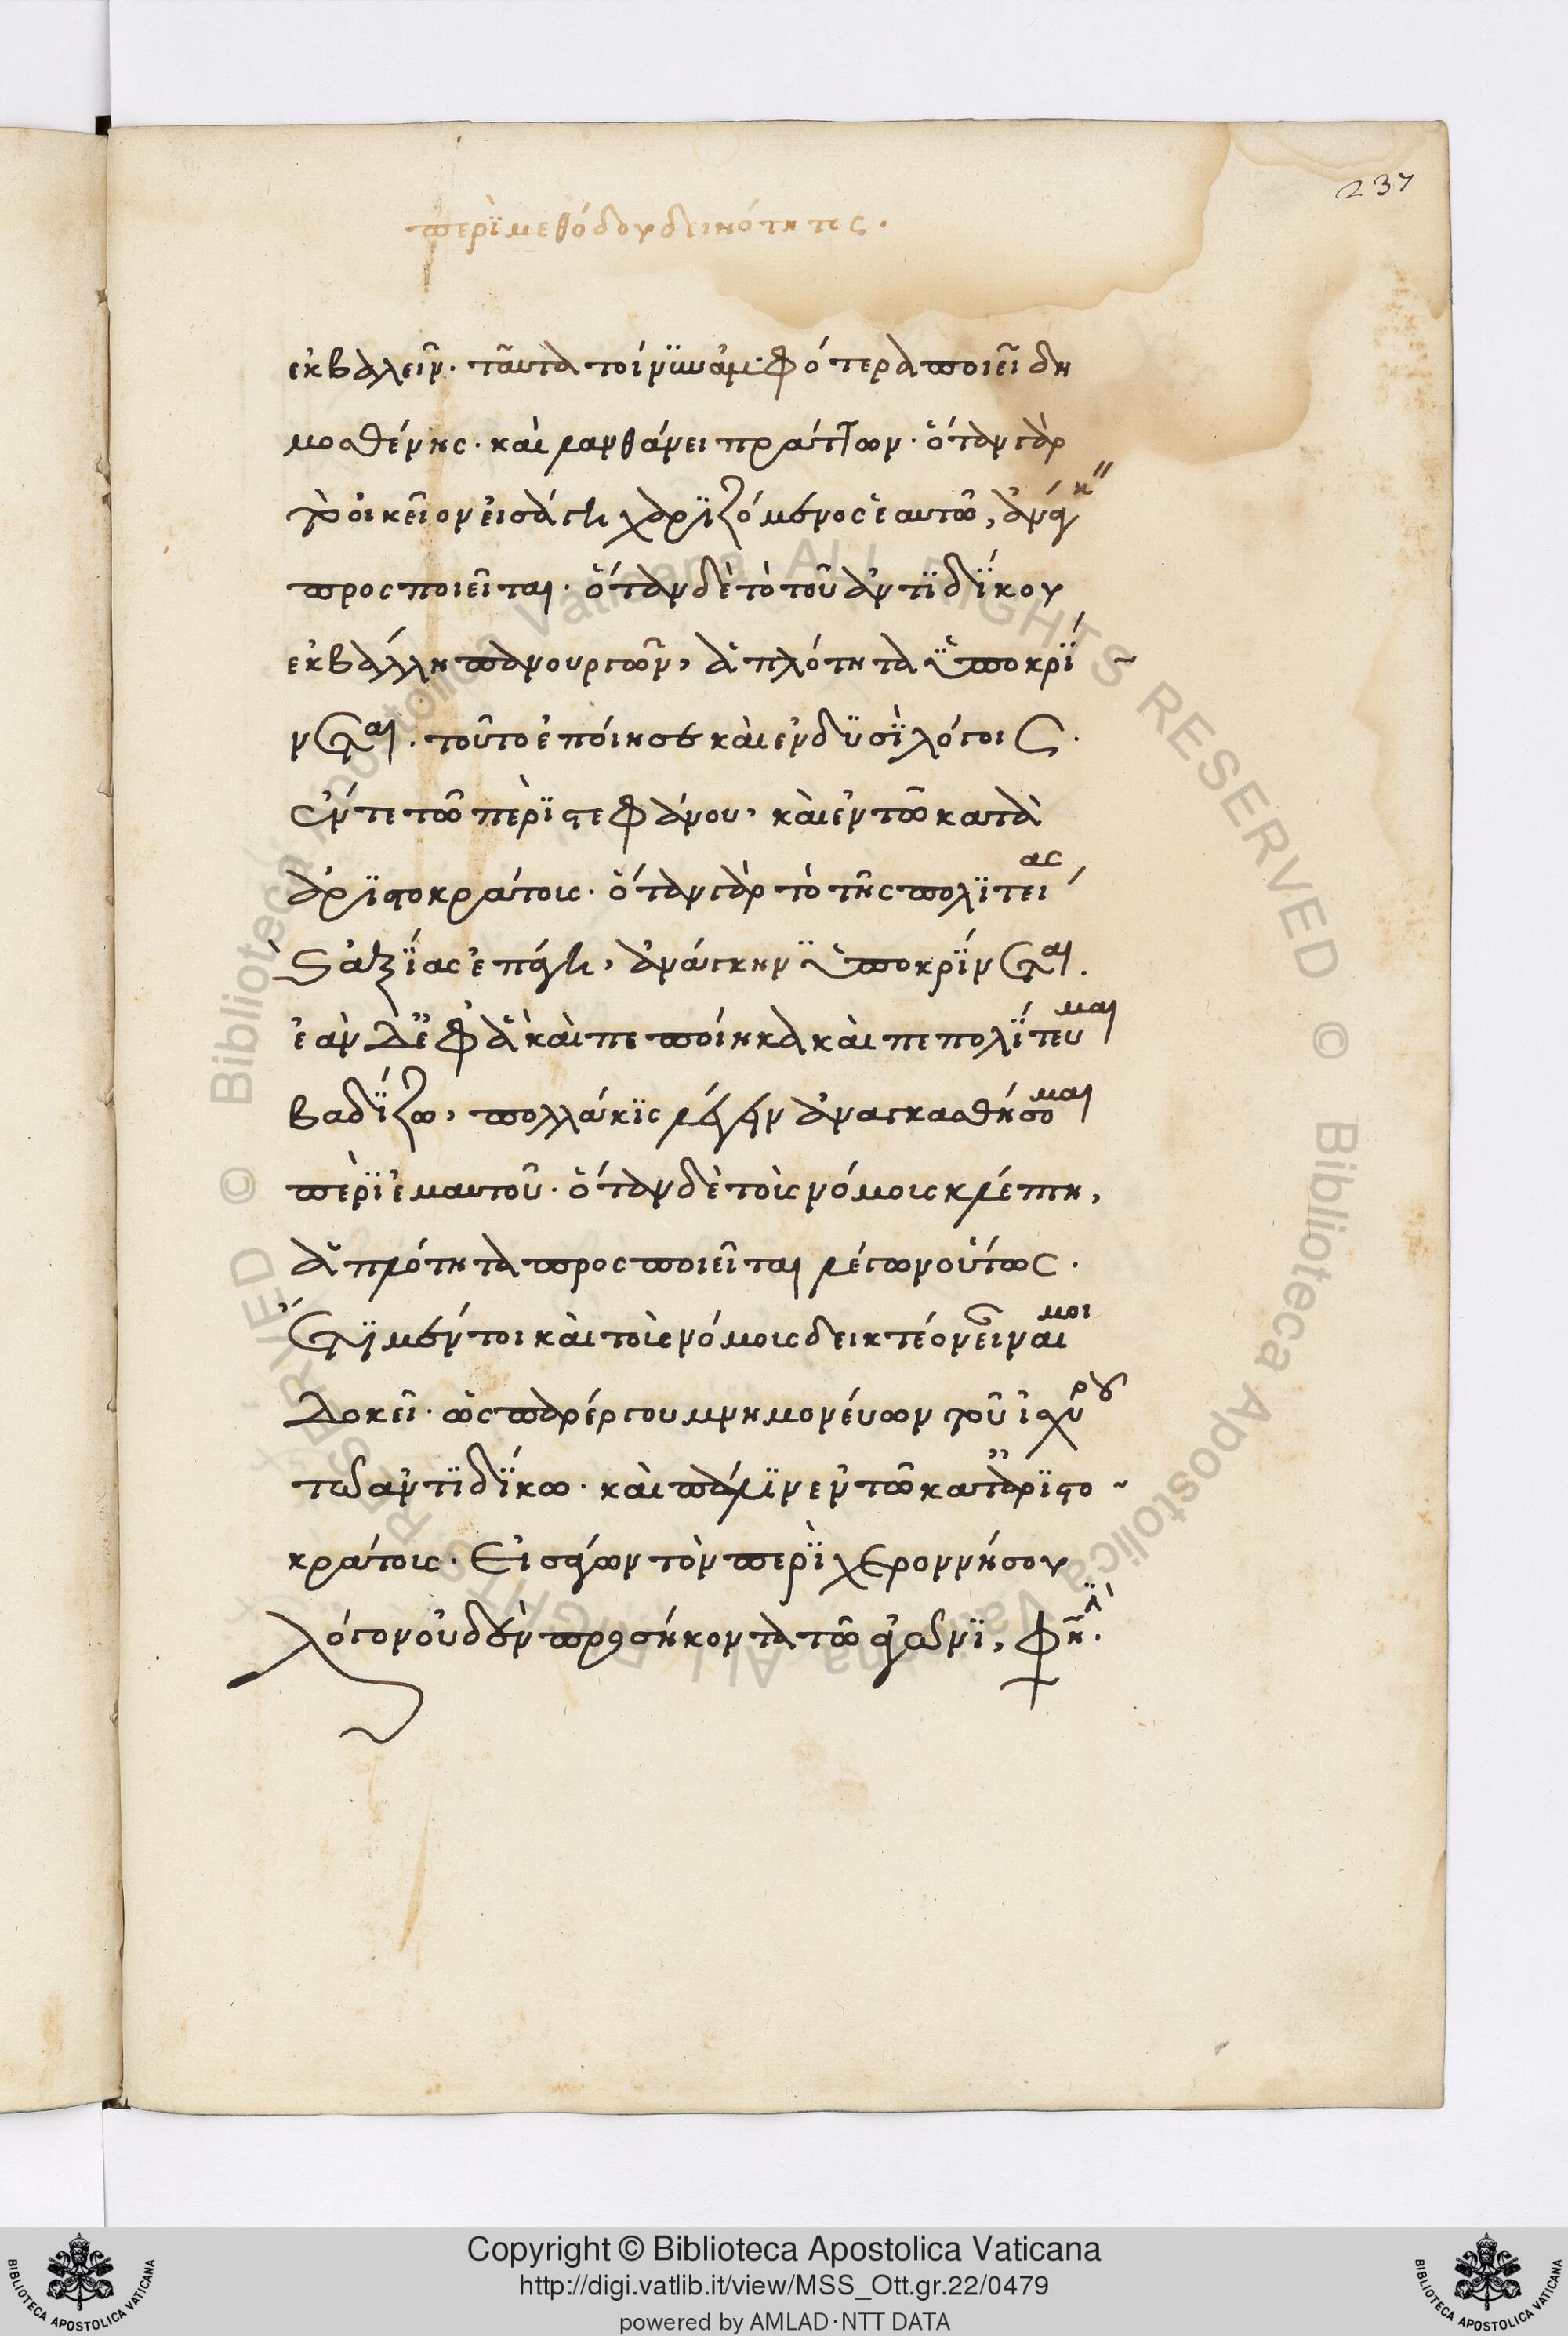 237
περὶ μεθόδου δεινότητος.
ἐκβαλεῖν. ταῦτα τοίνυν ἀμφότερα ποιεῖ δη
μοσθένης. καὶ μανθάνει πράττων. ὅταν γὰρ
τὸ οἰκεῖον εἰσάγη χαριζόμενος ἑαυτῶ, ἀνάγκ
προσποιεῖται. ὅταν δὲ τὸ τοῦ ἀντιδίκου
ἐκβάλλη πανουργῶν, ἁπλότητα ὑποκρί
νεται. τοῦτο ἐποίησε καὶ ἐν δυσὶ λόγοις.
ἔν τε τῶ περὶ στεφάνου, καὶ ἐν τῶ κατὰ
ἀριστοκράτους. ὅταν γὰρ τὸ τῆς πολιτείας
ἀξίας ἐπάγη, ἀνάγκην ὑποκρίνεται.
ἐὰν δὲ ἐφ ἃ καὶ πεποίηκα καὶ πεπολίτευμαι
βαδίζω, πολλάκις λέγειν ἀναγκασθήσομαι
περὶ ἐμαυτοῦ. ὅταν δὲ τοὺς νόμους κλέπτη,
ἁπλότητα προσποιεῖται λέγων οὕτως.
ἔτι μέντοι καὶ τοὺς νόμους δεικτέον εἶναι μοι
δοκεῖ. ὡς παρέργου μνημονεύων τοῦ ἰσχυροῦ
τῶ ἀντιδίκω. καὶ πάλιν ἐν τῶ κατ ἀριστο
κράτους. εἰσάγων τὸν περὶ χερρονήσου
λόγον οὐδὲν προσήκοντα τῶ ἀγῶνι, φη.
Copyright © Biblioteca Apostolica Vaticana
http://digi.vatlib.it/view/MSS_Ott.gr.22/0479
powered by AMLAD·NTT DATA